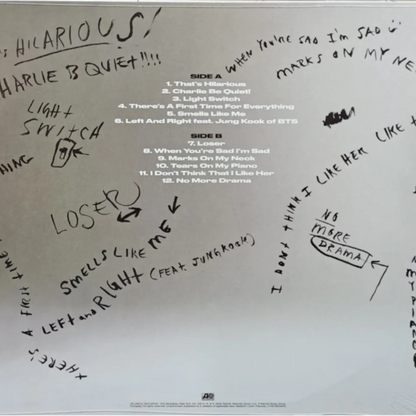 'S HILARIOUS!
HARLIE B QUIET!!!!
WHEN YOU'RE SAD I'M SAD
MARKS ON MY NE
LIGHT
SWITCH
SIDE A
1. That's Hilarious
2. Charlie Be Quiet!
3. Light Switch
4. There's A First Time For Everything
5. Smells Like Me
6. Left And Right feat. Jung Kook of BTS
SIDE B
7. Loser
8. When You're Sad I'm Sad
9. Marks On My Neck
10. Tears On My Piano
11. I Don't Think That I Like Her
12. No More Drama
HING
LOSER
SMELLS LIKE ME
LEFT and RIGHT (FEAT. JUNGKOOK)
THERE'S A FIRST TIME
I DONT THINK I LIKE HER LIKE
NO
MORE
DRAMA